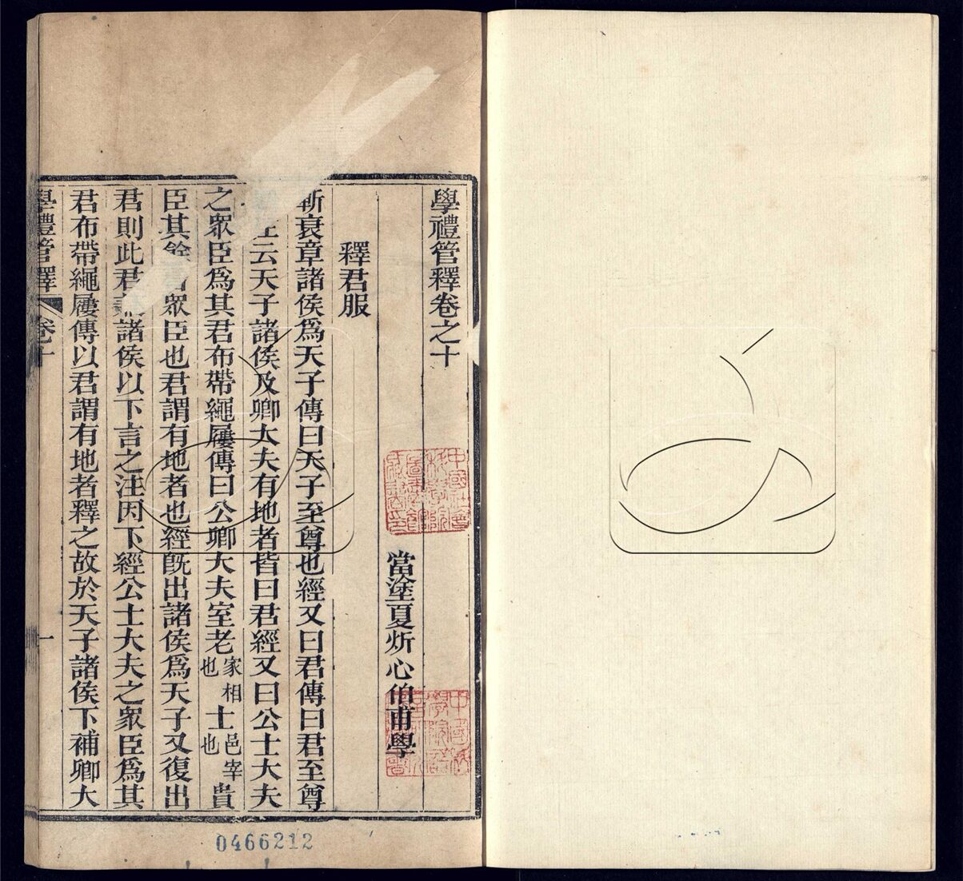 學禮管釋卷之十
當塗夏炘心伯甫學
釋君服
斬衰章諸侯爲天子傳曰天子至尊也經又曰君傳曰君至尊
云天子諸侯及卿大夫有地者皆曰君經又曰公士大夫
之眾臣爲其君布帶繩屨傳曰公卿大夫室老家相也士邑宰也貴
臣其餘眾臣也君謂有地者也經旣出諸侯爲天子又復出
君則此君諸侯以下言之注因下經公士大夫之眾臣爲其
君布帶繩屨傳以君謂有地者釋之故於天子諸侯下補卿大
學禮管釋 卷十 一
0466212